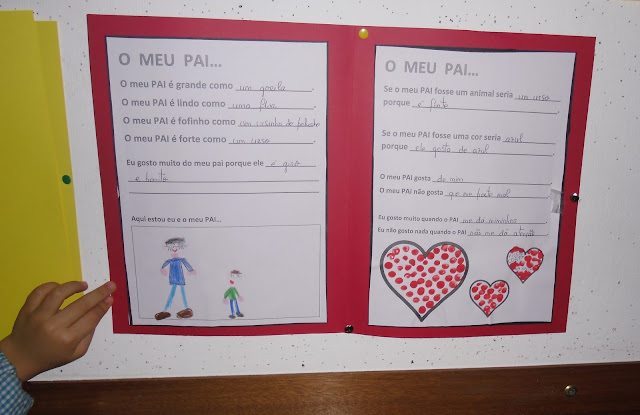 O MEU PAI...
O meu PAI é grande como um gorila.
O meu PAI é lindo como uma flor.
O meu PAI é fofinho como um ursinho de peluche
O meu PAI é forte como um urso.
Eu gosto muito do meu pai porque ele é giro
e bonito
Aqui estou eu e o meu PAI...
O MEU PAI...
Se o meu PAI fosse um animal seria um urso
porque é forte.
Se o meu PAI fosse uma cor seria azul
porque ele gosta de azul.
O meu PAI gosta de mim
O meu PAI não gosta que me porte mal.
Eu gosto muito quando o PAI me dá miminhos.
Eu não gosto nada quando o PAI não me dá atenção